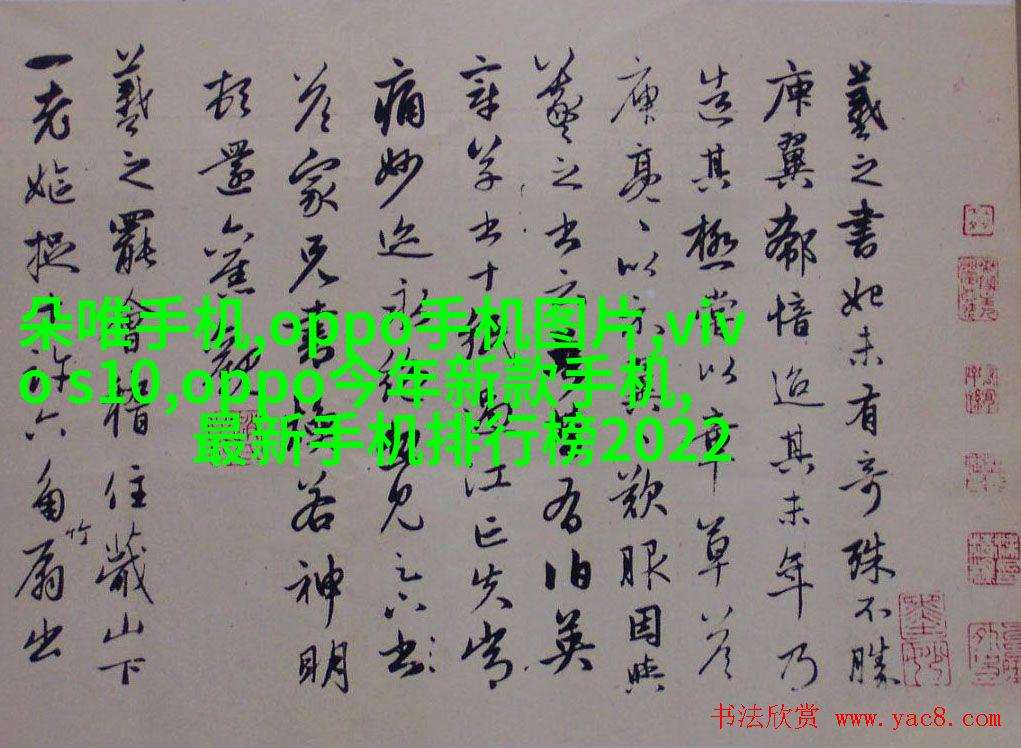 羲之書初未有奇殊不勝
庾翼郗愔迨其末年乃
造其極嘗以章草答
庾亮亮以示翼歎服因與
羲之書云吾昔有伯英
章草書十紙過江亡失常
痛妙迹永絕見足下書
答家兄書煥若神明
頓還舊觀
羲之罷會稽住蕺山下
一老嫗捉許六角竹扇出
朵唯手机,oppo手机图片,viv
o s10,oppo今年新款手机,
最新手机排行榜2022
书法欣赏 www.yac8.com